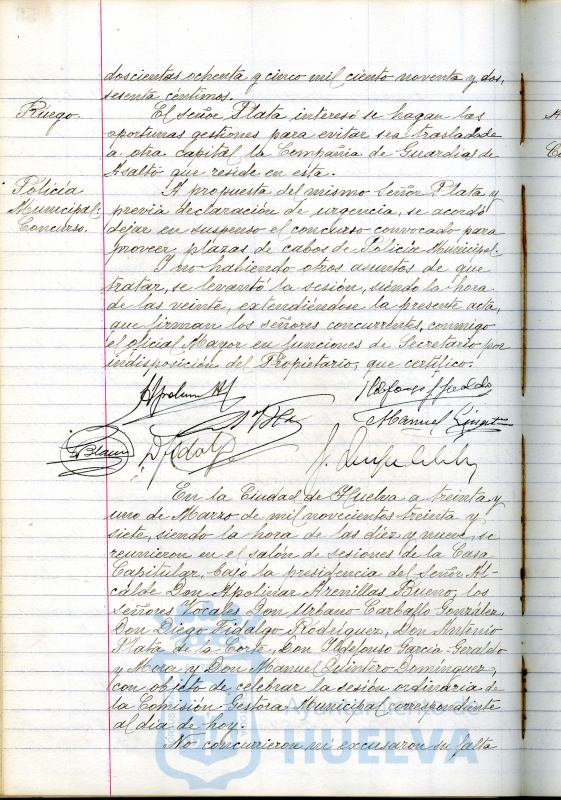 doscientas ochenta y cinco mil ciento noventa y dos,
sesenta céntimos.
Ruego.
El Señor Plata interesó se hagan las
oportunas gestiones para evitar sea trasladada
a otra capital la Compañia de Guardias de
Asalto que reside en esta.
Policía
Municipal.
Concurso.
A propuesta del mismo Señor Plata y
previa declaración de urgencia, se acordó
dejar en suspenso el concurso convocado para
proveer plazas de cabos de Policía Municipal.
Y no habiendo otros asuntos de que
tratar, se levantó la sesión, siendo la hora
de las veinte, extendiéndose la presente acta,
que firman los señores concurrentes, conmigo
el oficial Mayor en funciones de Secretario por
indisposición del Propietario, que certifico.
Manuel
En la Ciudad de Huelva a treinta y
uno de Marzo de mil novecientos treinta y
siete, siendo la hora de las diez y nueve, se
reunieron en el salón de sesiones de la Casa
Capitular, bajo la presidencia del Señor Al-
calde Don Apolinar Arenillas Bueno, los
señores Vocales Don Urbano Carballo González,
Don Diego Fidalgo Rodríguez, Don Antonio
Plata de la Corte, Don Ildefonso García-Geraldo
y Mora y Don Manuel Quintero Domínguez,
con objeto de celebrar la sesión ordinaria de
la Comisión Gestora Municipal correspondiente
al dia de hoy.
No concurrieron ni excusaron su falta
HUELVA